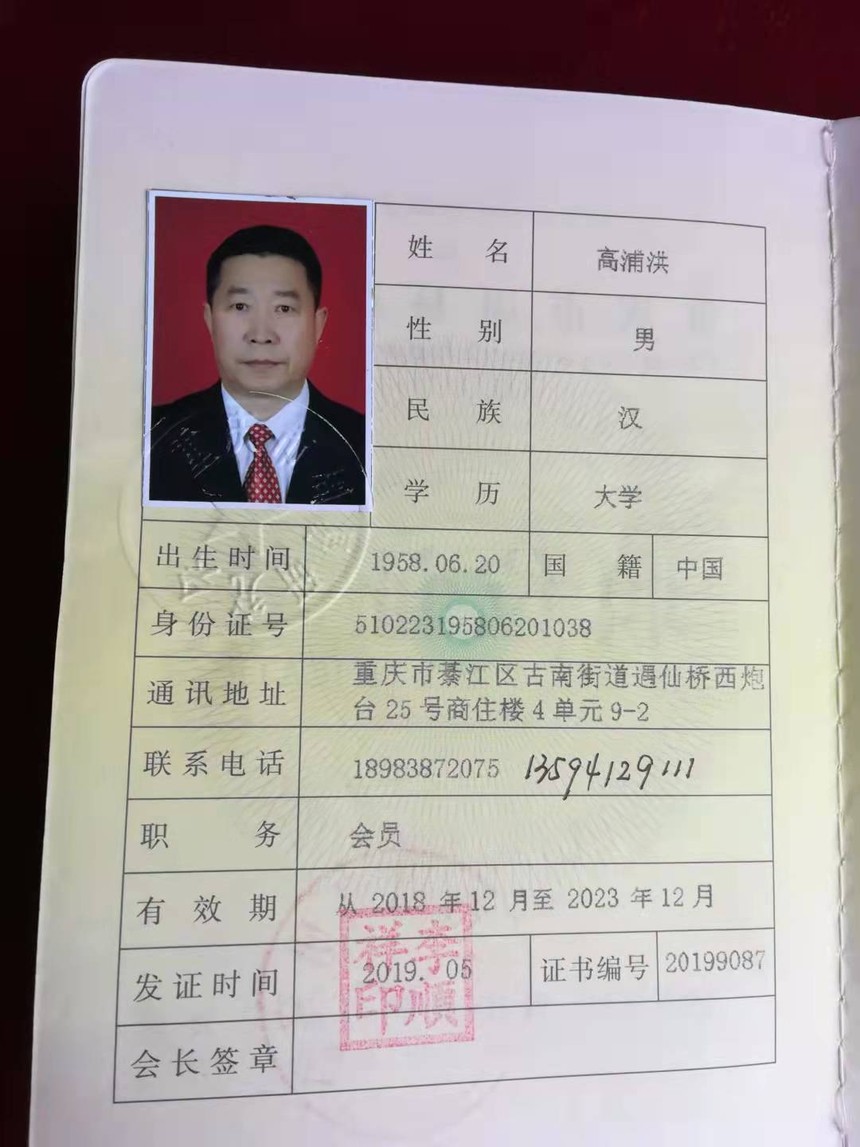 姓 名 高浦洪
性 别 男
民 族 汉
学 历 大学
出生时间 1958.06.20 国 籍 中国
身份证号 510223195806201038
通讯地址 重庆市綦江区古南街道遇仙桥西炮
台25号商住楼4单元9-2
联系电话 18983872075 13594129111
职 务 会员
有 效 期 从 2018 年 12 月至 2023 年 12 月
发证时间 2019. 05 证书编号 20199087
会长签章
李顺祥印